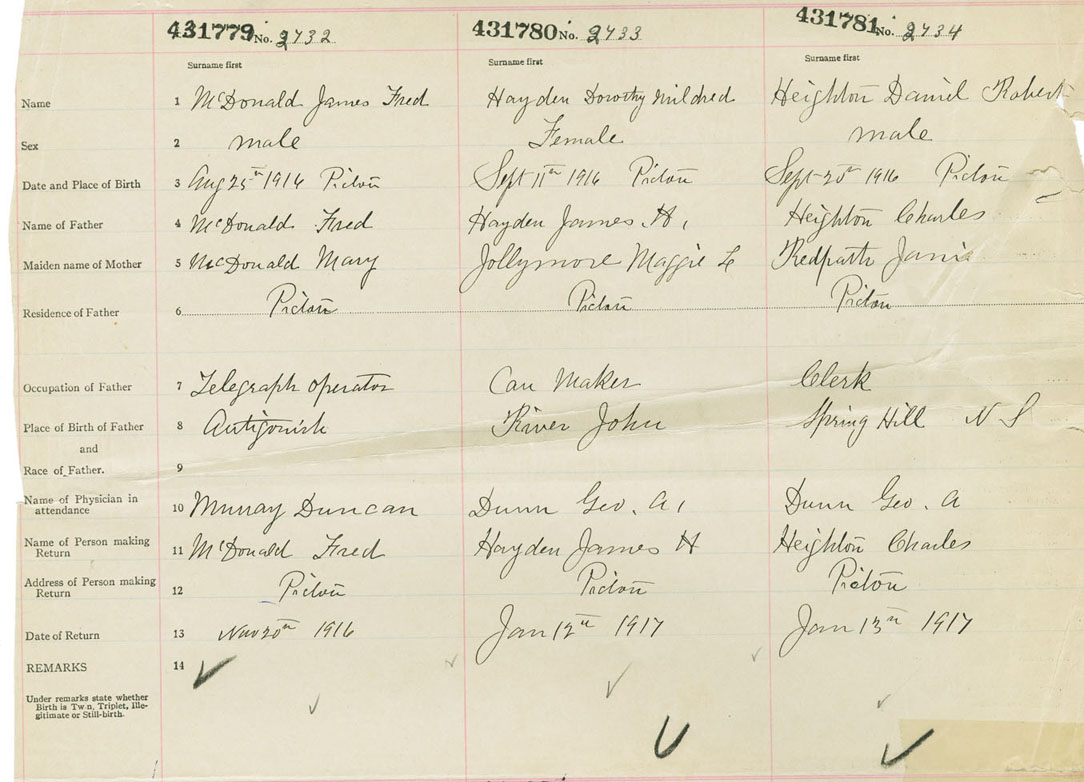 431779 No. 2732 431780 No. 2733 431781 No. 2734
Surname first Surname first Surname first
Name 1 McDonald James Fred Hayden Dorothy Mildred Heighton Daniel Robert
Sex 2 male Female male
Date and Place of Birth 3 Aug 25th 1916 Pictou Sept 11th 1916 Pictou Sept 20th 1916 Pictou
Name of Father 4 McDonald Fred Hayden James H, Heighton Charles
Maiden name of Mother 5 McDonald Mary Jollymore Maggie L Redpath
Residence of Father 6 Pictou Pictou Pictou
Occupation of Father 7 Telegraph operator Can Maker Clerk
Place of Birth of Father 8 Antigonish River John Spring Hill N S
and
Race of Father. 9
Name of Physician in
attendance 10 Murray Duncan Dunn Geo. A, Dunn Geo. A
Name of Person making
Return 11 McDonald Fred Hayden James H Heighton Charles
Address of Person making
Return 12 Pictou Pictou Pictou
Date of Return 13 Nov 20th 1916 Jan 12th 1917 Jan 13th 1917
REMARKS 14
Under remarks state whether
Birth is Twin, Triplet, Ille-
gitimate or Still-birth.